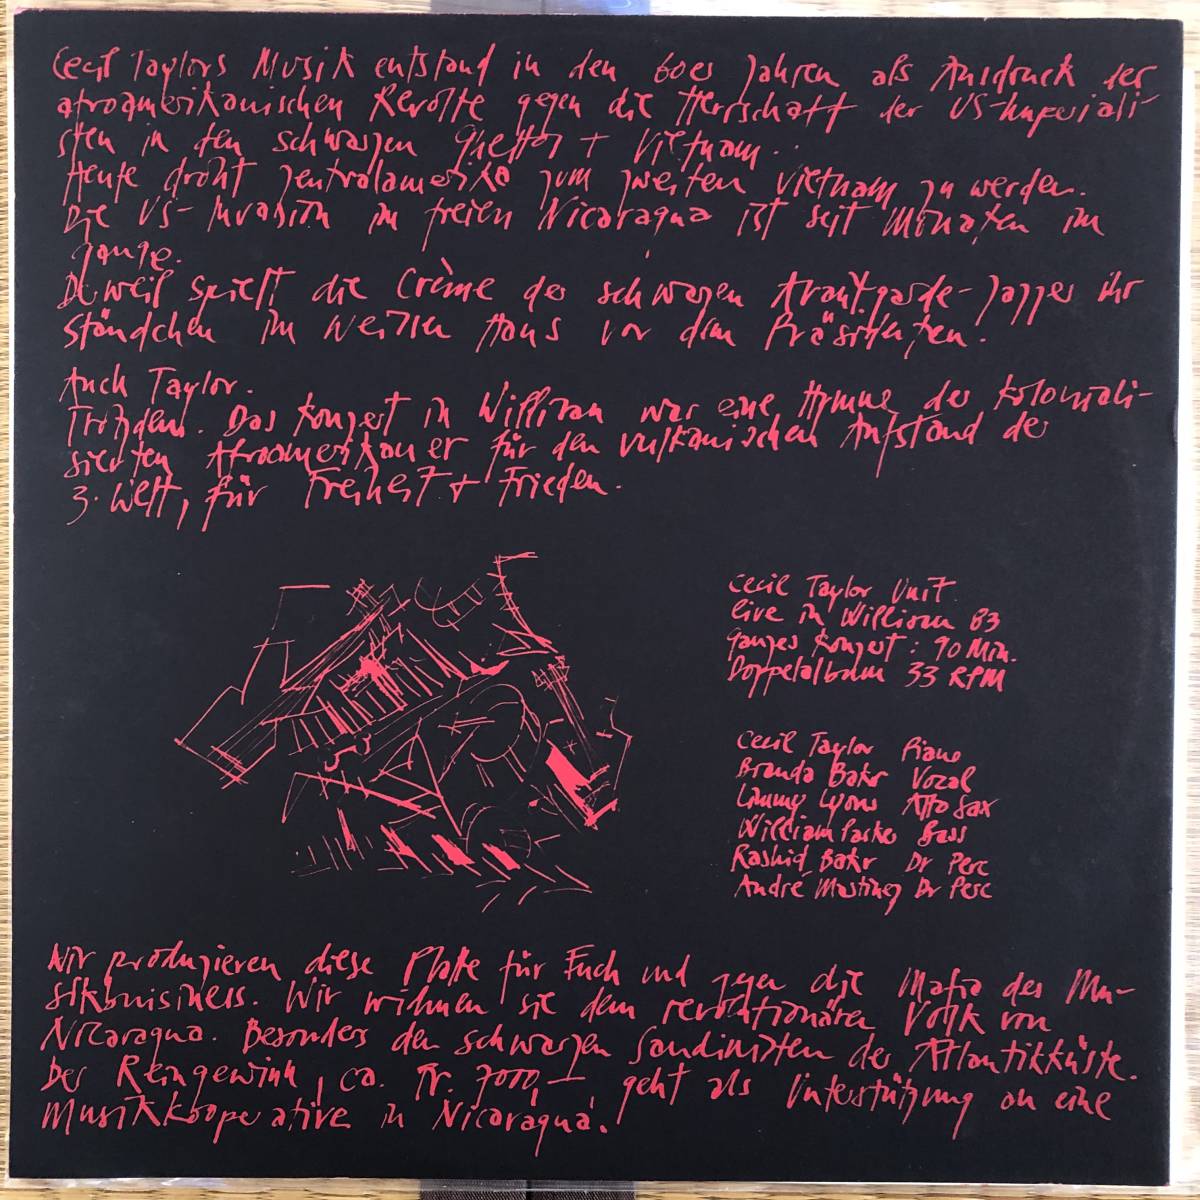 Cecil Taylors Musik entstand in den 60er Jahren als Ausdruck der
afroamerikanischen Revolte gegen die Herrschaft der US-Imperiali-
sten in den schwarzen Ghettos + Vietnam..
Heute droht Zentralamerika zum zweiten Vietnam zu werden.
Die US-Invasion im freien Nicaragua ist seit Monaten im
gange.
Derweil spielt die Crème der schwarzen Avantgarde-Jazzer ihr
Ständchen im Weissen Haus vor dem Präsidenten.
Auch Taylor.
Trotzdem. Das Konzert in Willisau war eine Hymne der koloniali-
sierten Afroamerikaner für den vulkanischen Aufstand der
3. Welt, für Freiheit + Frieden.
Cecil Taylor Unit
live in Willisau 83
ganzes Konzert: 90 Min.
Doppelalbum 33 RPM
Cecil Taylor Piano
Brenda Bakr Vocal
Jimmy Lyons Alto Sax
William Parker Bass
Rashid Bakr Dr Perc
André Martinez Dr Perc
Wir produzieren diese Platte für Euch und gegen die Mafia des Mu-
sikbuisiness. Wir widmen sie dem revolutionären Volk von
Nicaragua. Besonders den schwarzen Sandinisten der Atlantikküste.
Der Reingewinn, ca. Fr. 7000,– geht als Unterstützung an eine
Musikkooperative in Nicaragua.